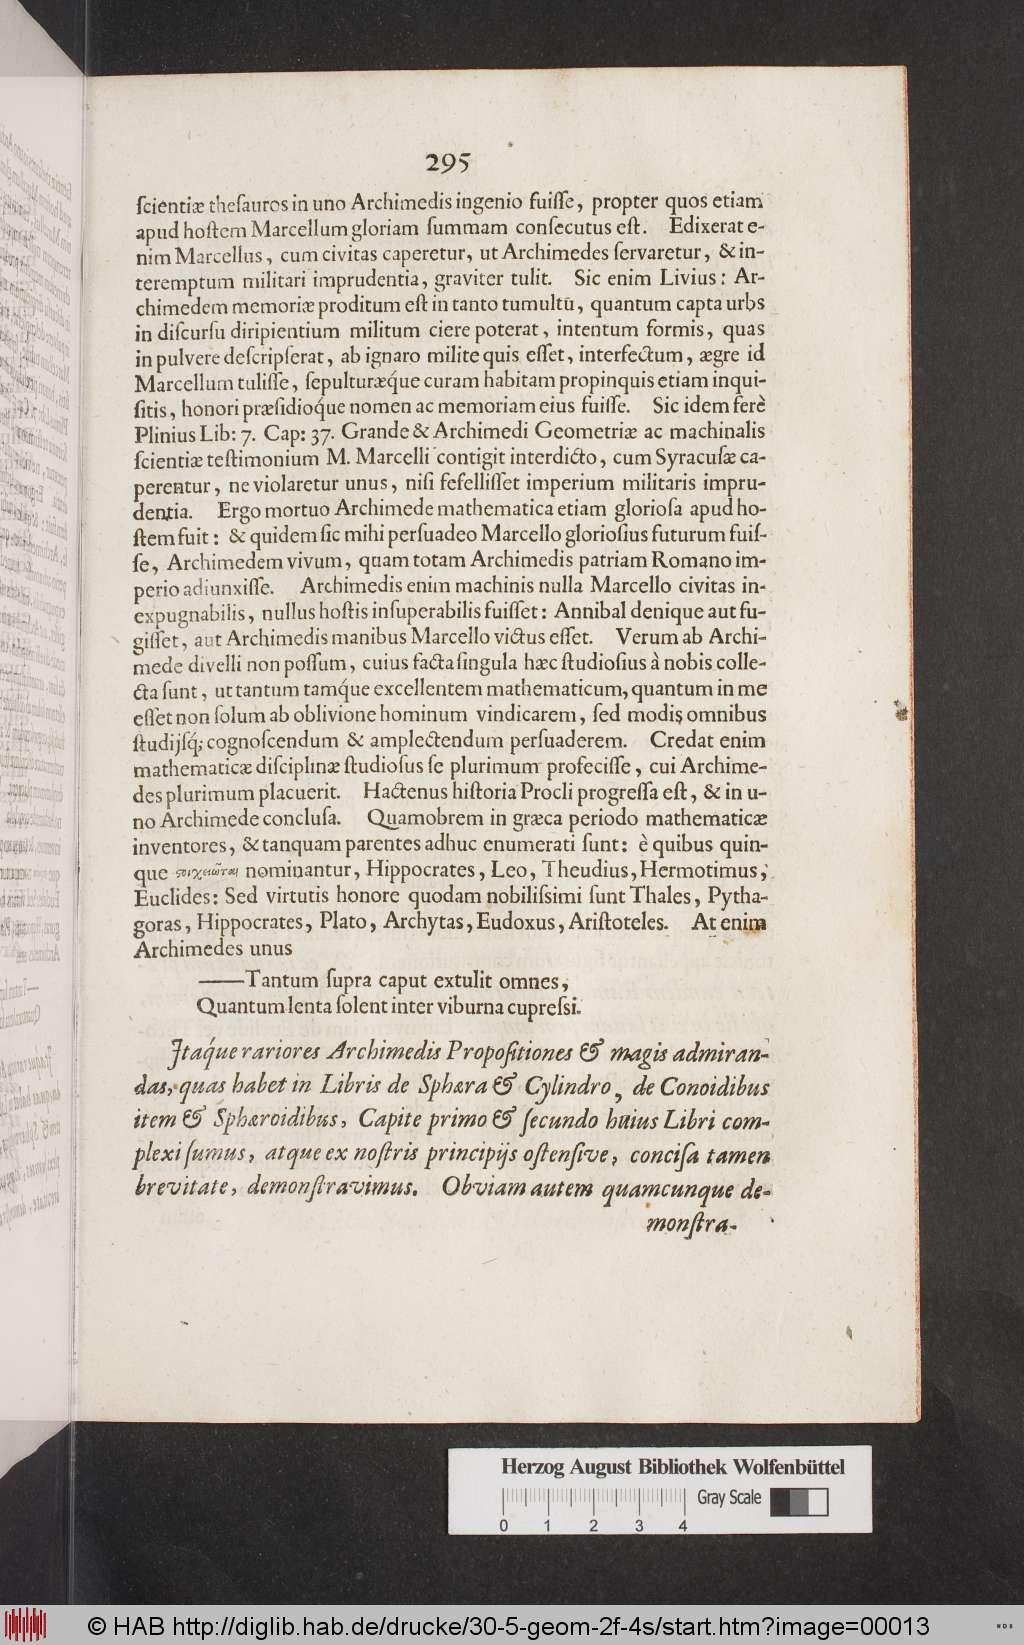 295
ſcientiæ theſauros in uno Archimedis ingenio fuiſſe, propter quos etiam
apud hoſtem Marcellum gloriam ſummam conſecutus eſt. Edixerat e-
nim Marcellus, cum civitas caperetur, ut Archimedes ſervaretur, & in-
teremptum militari imprudentia, graviter tulit. Sic enim Livius: Ar-
chimedem memoriæ proditum eſt in tanto tumultū, quantum capta urbs
in diſcurſu diripientium militum ciere poterat, intentum formis, quas
in pulvere deſcripſerat, ab ignaro milite quis eſſet, interfectum, ægre id
Marcellum tuliſſe, ſepulturæq́ue curam habitam propinquis etiam inqui-
ſitis, honori præſidioq́ue nomen ac memoriam eius fuiſſe. Sic idem ferè
Plinius Lib: 7. Cap: 37. Grande & Archimedi Geometriæ ac machinalis
ſcientiæ teſtimonium M. Marcelli contigit interdicto, cum Syracuſæ ca-
perentur, ne violaretur unus, niſi fefelliſſet imperium militaris impru-
dentia. Ergo mortuo Archimede mathematica etiam glorioſa apud ho-
ſtem fuit: & quidem ſic mihi perſuadeo Marcello glorioſius futurum fuiſ-
ſe, Archimedem vivum, quam totam Archimedis patriam Romano im-
perio adiunxiſſe. Archimedis enim machinis nulla Marcello civitas in-
expugnabilis, nullus hoſtis inſuperabilis fuiſſet: Annibal denique aut fu-
giſſet, aut Archimedis manibus Marcello victus eſſet. Verum ab Archi-
mede divelli non poſſum, cuius facta ſingula hæc ſtudioſius à nobis colle-
cta ſunt, ut tantum tamq́ue excellentem mathematicum, quantum in me
eſſet non ſolum ab oblivione hominum vindicarem, ſed modis omnibus
ſtudijſq́; cognoſcendum & amplectendum perſuaderem. Credat enim
mathematicæ diſciplinæ ſtudioſus ſe plurimum profeciſſe, cui Archime-
des plurimum placuerit. Hactenus hiſtoria Procli progreſſa eſt, & in u-
no Archimede concluſa. Quamobrem in græca periodo mathematicæ
inventores, & tanquam parentes adhuc enumerati ſunt: è quibus quin-
que ϛοιχειῶται nominantur, Hippocrates, Leo, Theudius, Hermotimus,
Euclides: Sed virtutis honore quodam nobiliſsimi ſunt Thales, Pytha-
goras, Hippocrates, Plato, Archytas, Eudoxus, Ariſtoteles. At enim
Archimedes unus
——Tantum ſupra caput extulit omnes,
Quantum lenta ſolent inter viburna cupreſsi.
Itaq́ue rariores Archimedis Propoſitiones & magis admiran-
das, quas habet in Libris de Sphæra & Cylindro, de Conoidibus
item & Sphæroidibus, Capite primo & ſecundo huius Libri com-
plexi ſumus, atque ex noſtris principijs oſtenſive, conciſa tamen
brevitate, demonſtravimus. Obviam autem quamcunque de-
monſtra-
Herzog August Bibliothek Wolfenbüttel
Gray Scale
0 1 2 3 4
© HAB http://diglib.hab.de/drucke/30-5-geom-2f-4s/start.htm?image=00013